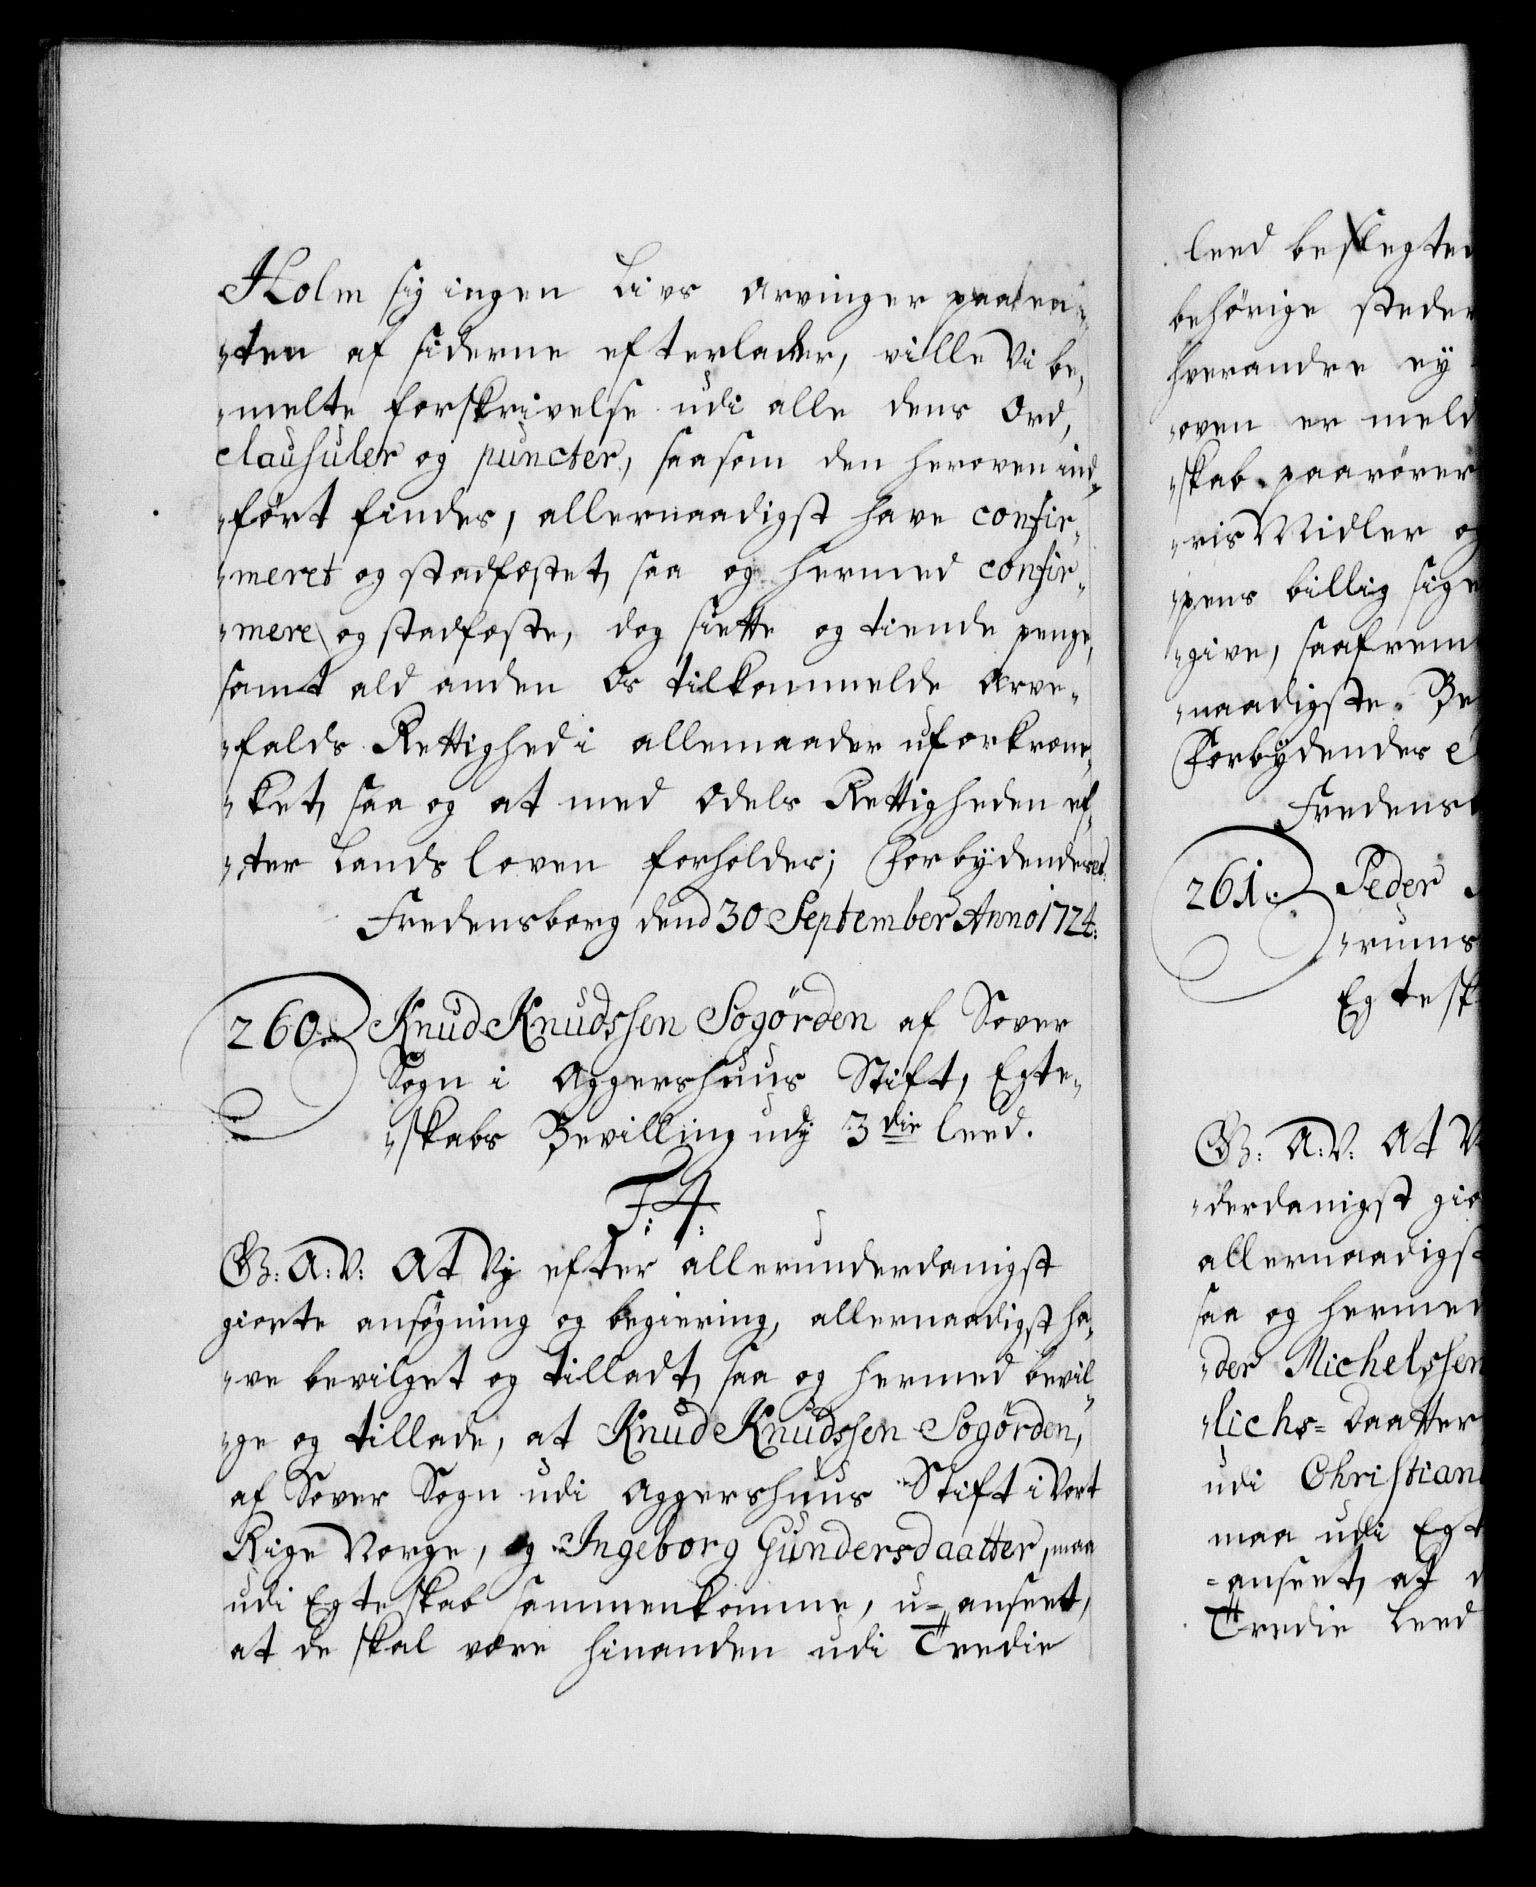 Holm sig ingen Livs Arvinger paa een¬
"ten af siderne efterlader, ville Vi be¬
"melte forskrivelse udi alle dens Ord,
clausuler og puncter, saasom den heroven ind¬
"ført findes, allernaadigst have confir¬
"meret og stadfæstet, saa og hermed confir¬
"mere og stadfæste, dog siette og tiende penge,
samt ald anden Os tilkommelde Arve¬
"falds Rettighed i allemaader uforkræn¬
"ket, saa og at med Odels Rettigheden ef¬
"ter Lands loven forholdes; Forbydendes et.
Fredensborg dend 30 September Anno 1724.
260. Knud Knudssen Sogörden af Sover
Sogn i Aggershuus Stift, Egte¬
"skabs Bevilling udj 3die leed.
F: 4:
G: A: V: At Vj efter allerunderdanigst
giorte ansøgning og begiering, allernaadigst ha¬
"ve bevilget og tilladt, saa og hermed bevil¬
"ge og tillade, at Knud Knudssen Sogörden,
af Sover Sogn udi Aggershuus Stift i Vort
Rige Norge, og Ingeborg Gundersdaatter, maa
udi Egteskab sammenkomme, u-anseet,
at de skal være hinanden udi Tredie
leed beslegted
behörige steder
hverandre ey
"oven er meld
"skab paarörer
"ris Midler og
"pens billig sige
"give, saafrem
"naadigste Be
Forbydendes e
Fredensb
261. Peder
"rums
Egtesk
G: A: V: At V
"derdanigst gio
allernaadigst
saa og hermed
"der Michelssen
"lichs-Daatter
udi Christian
maa udi Egt
-anseet, at d
Tredie Leed